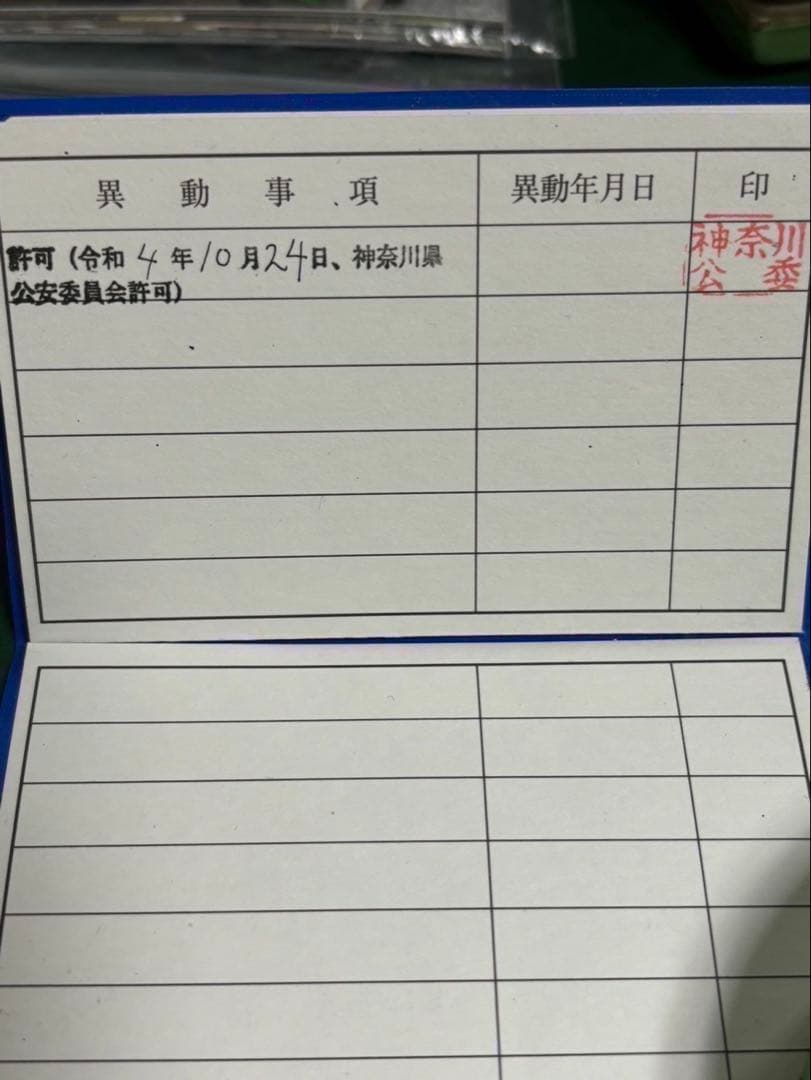 異動事項 異動年月日 印
許可(令和4年10月24日、神奈川県
公安委員会許可)
神奈川
公委